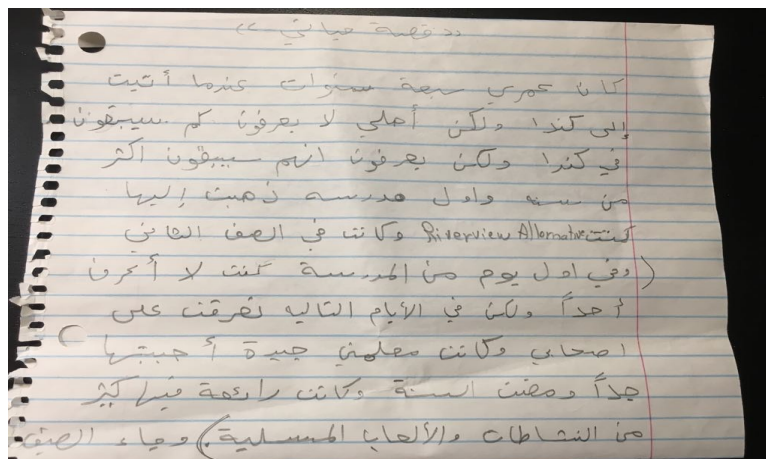 « قصة حياتي »
كان عمري سبعة سنوات عندما أتيت
إلى كندا ولكن أهلي لا يعرفون كم سيبقون
في كندا ولكن يعرفون انهم سيبقون اكثر
من سنه واول مدرسه ذهبت إليها
كانت Riverview Alternative وكانت في الصف الثاني
(وفي اول يوم من المدرسة كنت لا أعرف
أحداً ولكن في الأيام التاليه تعرفت على
اصحابي وكانت معلمتي جيدة أحببتها
جداً ومضت السنة وكانت رائعة فيها كثير
من النشاطات والألعاب المسلية.) وجاء الصيف